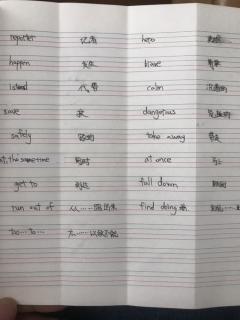 reporter 记者 hero
happen 发生 brave
island 代替 calm 沉着的
save 救 dangerous 危险的
safely take away 带走
at the same time 同时 at once 马上
get to 到达 fall down
run out of 从……跑出来 find doing
too…to… 太……以致不能